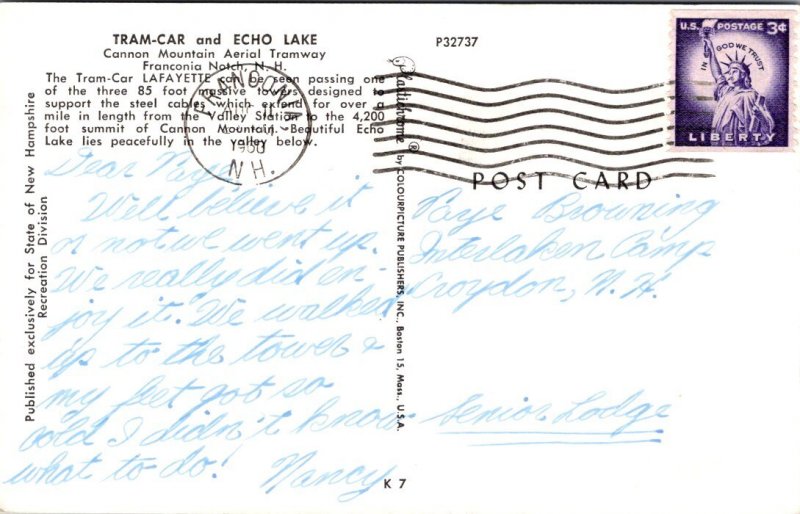 TRAM-CAR and ECHO LAKE
Cannon Mountain Aerial Tramway
Franconia Notch, N. H.
The Tram-Car LAFAYETTE can be seen passing one
of the three 85 foot massive towers designed to
support the steel cables which extend for over a
mile in length from the Valley Station to the 4,200
foot summit of Cannon Mountain. Beautiful Echo
Lake lies peacefully in the valley below.
Published exclusively for State of New Hampshire
Recreation Division
FRANCONIA
1958
N.H.
P32737
Plastichrome ® by COLOURPICTURE PUBLISHERS, INC., Boston 15, Mass., U.S.A.
U.S. POSTAGE 3¢
IN GOD WE TRUST
LIBERTY
POST CARD
Dear Kaye
Well believe it
or not we went up.
We really did en-
joy it. We walked
up to the tower &
my feet got so
cold I didn't know
what to do!
Nancy
Kaye Browning
Interlaken Camp
Croydon, N. H.
Senior Lodge
K 7